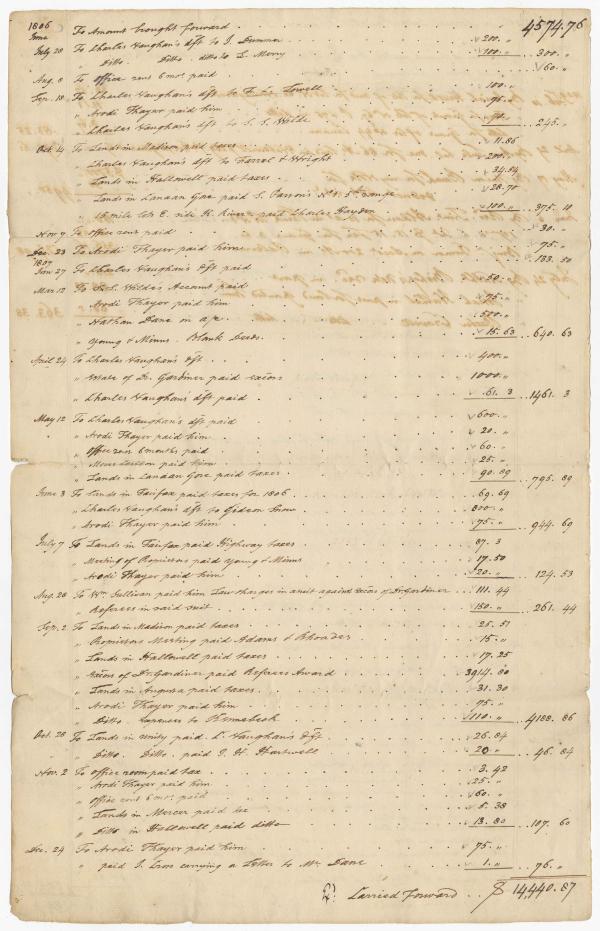 1806
June To Amount brought forward 4574.76
July 28 To Charles Vaughan's dft to J. Dummer 200. "
" Ditto Ditto ditto to L. Merry 100. " 300. "
Aug. 8 To office rent 6 mos. paid 60. "
Sep. 10 To Charles Vaughan's dft to F. C. Lowell 100. "
" Arodi Thayer paid him 75. "
" Charles Vaughan's dft to S. S. Wilde 70. " 245. "
Oct. 4 To Lands in Madison paid taxes 11.86
Charles Vaughan's dft to Farrel & Wright 200. "
" Lands in Hallowell paid taxes 34.54
" Lands in Canaan Gore paid S. Parson's 5th range 28.70
" 15 mile lots E. side K. River paid Charles Hayden 100. " 375. 10
Nov. 7 To office rent paid 30. "
Dec. 23 To Arodi Thayer paid him 75. "
1807
Jan 27 To Charles Vaughan's dft paid 133. 50
Mar. 12 To S. S. Wilde's Account paid 50. "
" Arodi Thayer paid him 75. "
" Nathan Dane on a/c 500. "
" Young & Minns Blank Deeds 15. 63 640. 63
April 24 To Charles Vaughan's dft 400. "
" Estate of Dr. Gardiner paid excors 1000. "
" Charles Vaughan's dft paid 61. 3 1461. 3
May 12 To Charles Vaughan's dft paid 600. "
" Arodi Thayer paid him 20. "
" Office rent 6 months paid 60. "
" paid him 25. "
" Lands in Canaan Gore paid taxes 90. 89 795. 89
June 3 To Lands in Fairfax paid taxes for 1806 69. 69
" Charles Vaughan's dft to Gideon Snow 800. "
" Arodi Thayer paid him 75. " 944. 69
July 7 To Lands in Fairfax paid Highway taxes 87. 3
" Meeting of Proprietors paid Young & Minns 17. 50
" Arodi Thayer paid him 20. " 124. 53
Aug. 28 To Wm. Sullivan paid him Law charges in a suit against excors of Dr. Gardiner 111. 44
" Referees in said suit 150. " 261. 44
Sep. 2 To Lands in Madison paid taxes 25. 51
" Proprietors Meeting paid Adams & Rhoades 15. "
" Lands in Hallowell paid taxes 17. 25
" Excors of Dr. Gardiner paid Referees Award 3914. 80
" Lands in Augusta paid taxes 31. 30
" Arodi Thayer paid him 75. "
" Ditto expenses to Kennebeck 110. " 4188. 86
Oct. 28 To Lands in Unity paid C. Vaughan's dft 26. 84
" Ditto Ditto paid J. H. Hartwell 20 " 46. 84
Nov. 2 To office room paid tax 3. 42
" Arodi Thayer paid him 25. "
" Office rent 6 mos. paid 60. "
" Lands in Mercer paid tax 5. 38
" Ditto in Hallowell paid ditto 13. 80 107. 60
Dec. 24 To Arodi Thayer paid him 75. "
" paid J. carrying a Letter to Mr. Dane 1. " 76. "
Carried Forward $ 14,440. 87